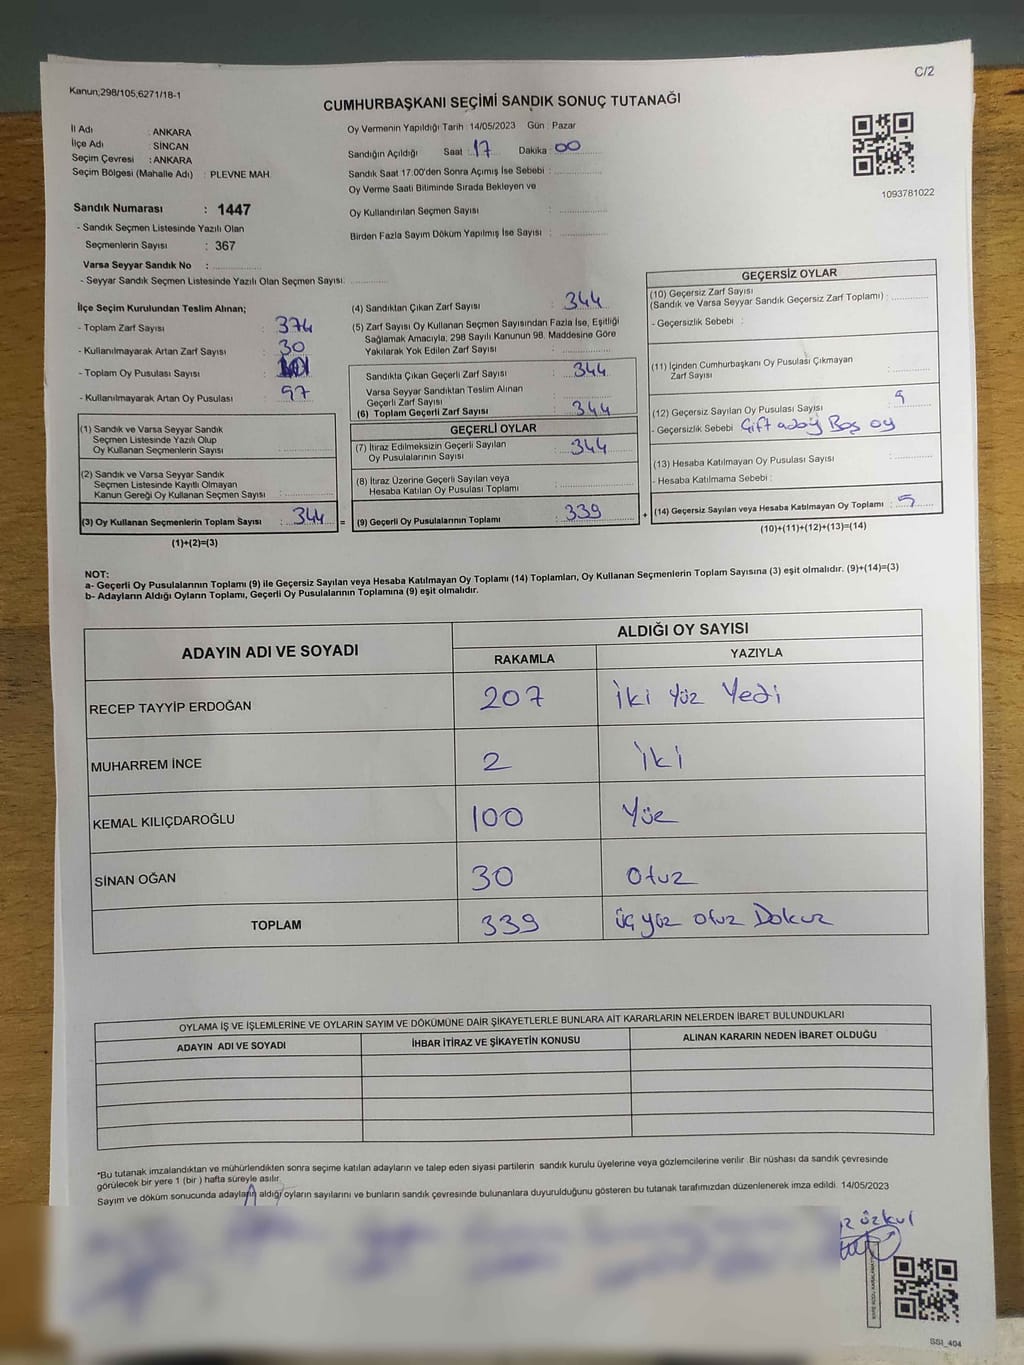 C/2
Kanun;298/105,6271/18-1
CUMHURBAŞKANI SEÇİMİ SANDIK SONUÇ TUTANAĞI
İl Adı : ANKARA
İlçe Adı : SİNCAN
Seçim Çevresi : ANKARA
Seçim Bölgesi (Mahalle Adı) : PLEVNE MAH.
Sandık Numarası : 1447
- Sandık Seçmen Listesinde Yazılı Olan
Seçmenlerin Sayısı : 367
Varsa Seyyar Sandık No :
- Seyyar Sandık Seçmen Listesinde Yazılı Olan Seçmen Sayısı:
Oy Vermenin Yapıldığı Tarih :14/05/2023 Gün : Pazar
Sandığın Açıldığı Saat : 17 Dakika : 00
Sandık Saat 17.00'den Sonra Açımış İse Sebebi :
Oy Verme Saati Bitiminde Sırada Bekleyen ve
Oy Kullandırılan Seçmen Sayısı :
Birden Fazla Sayım Döküm Yapılmış İse Sayısı :
1093781022
İlçe Seçim Kurulundan Teslim Alınan;
- Toplam Zarf Sayısı : 374
- Kullanılmayarak Artan Zarf Sayısı : 30
- Toplam Oy Pusulası Sayısı :
- Kullanılmayarak Artan Oy Pusulası : 97
(1) Sandık ve Varsa Seyyar Sandık
Seçmen Listesinde Yazılı Olup
Oy Kullanan Seçmenlerin Sayısı :
(2) Sandık ve Varsa Seyyar Sandık
Seçmen Listesinde Kayıtlı Olmayan
Kanun Gereği Oy Kullanan Seçmen Sayısı :
(3) Oy Kullanan Seçmenlerin Toplam Sayısı : 344 =
(1)+(2)=(3)
(4) Sandıktan Çıkan Zarf Sayısı : 344
(5) Zarf Sayısı Oy Kullanan Seçmen Sayısından Fazla İse, Eşitliği
Sağlamak Amacıyla, 298 Sayılı Kanunun 98. Maddesine Göre
Yakılarak Yok Edilen Zarf Sayısı :
Sandıkta Çıkan Geçerli Zarf Sayısı : 344
Varsa Seyyar Sandıktan Teslim Alınan
Geçerli Zarf Sayısı :
(6) Toplam Geçerli Zarf Sayısı : 344
GEÇERLİ OYLAR
(7) İtiraz Edilmeksizin Geçerli Sayılan
Oy Pusulalarının Sayısı : 344
(8) İtiraz Üzerine Geçerli Sayılan veya
Hesaba Katılan Oy Pusulası Toplamı :
(9) Geçerli Oy Pusulalarının Toplamı : 339 +
GEÇERSİZ OYLAR
(10) Geçersiz Zarf Sayısı
(Sandık ve Varsa Seyyar Sandık Geçersiz Zarf Toplamı) :
- Geçersizlik Sebebi :
(11) İçinden Cumhurbaşkanı Oy Pusulası Çıkmayan
Zarf Sayısı :
(12) Geçersiz Sayılan Oy Pusulası Sayısı : 5
- Geçersizlik Sebebi : Çift adoy Boş oy
(13) Hesaba Katılmayan Oy Pusulası Sayısı :
- Hesaba Katılmama Sebebi :
(14) Geçersiz Sayılan veya Hesaba Katılmayan Oy Toplamı : 5
(10)+(11)+(12)+(13)=(14)
NOT:
a- Geçerli Oy Pusulalarının Toplamı (9) ile Geçersiz Sayılan veya Hesaba Katılmayan Oy Toplamı (14) Toplamları, Oy Kullanan Seçmenlerin Toplam Sayısına (3) eşit olmalıdır. (9)+(14)=(3)
b- Adayların Aldığı Oyların Toplamı, Geçerli Oy Pusulalarının Toplamına (9) eşit olmalıdır.
ADAYIN ADI VE SOYADI
ALDIĞI OY SAYISI
RAKAMLA YAZIYLA
RECEP TAYYİP ERDOĞAN 207 İki Yüz Yedi
MUHARREM İNCE 2 İki
KEMAL KILIÇDAROĞLU 100 Yüz
SİNAN OĞAN 30 Otuz
TOPLAM 339 üç yüz otuz Dokuz
OYLAMA İŞ VE İŞLEMLERİNE VE OYLARIN SAYIM VE DÖKÜMÜNE DAİR ŞİKAYETLERLE BUNLARA AİT KARARLARIN NELERDEN İBARET BULUNDUKLARI
ADAYIN ADI VE SOYADI İHBAR İTİRAZ VE ŞİKAYETİN KONUSU ALINAN KARARIN NEDEN İBARET OLDUĞU
*Bu tutanak imzalandıktan ve mühürlendikten sonra seçime katılan adayların ve talep eden siyasi partilerin sandık kurulu üyelerine veya gözlemcilerine verilir. Bir nüshası da sandık çevresinde
görülecek bir yere 1 (bir ) hafta süreyle asılır.
Sayım ve döküm sonucunda adayların aldığı oyların sayılarını ve bunların sandık çevresinde bulunanlara duyurulduğunu gösteren bu tutanak tarafımızdan düzenlenerek imza edildi. 14/05/2023
özkul
SSI_404